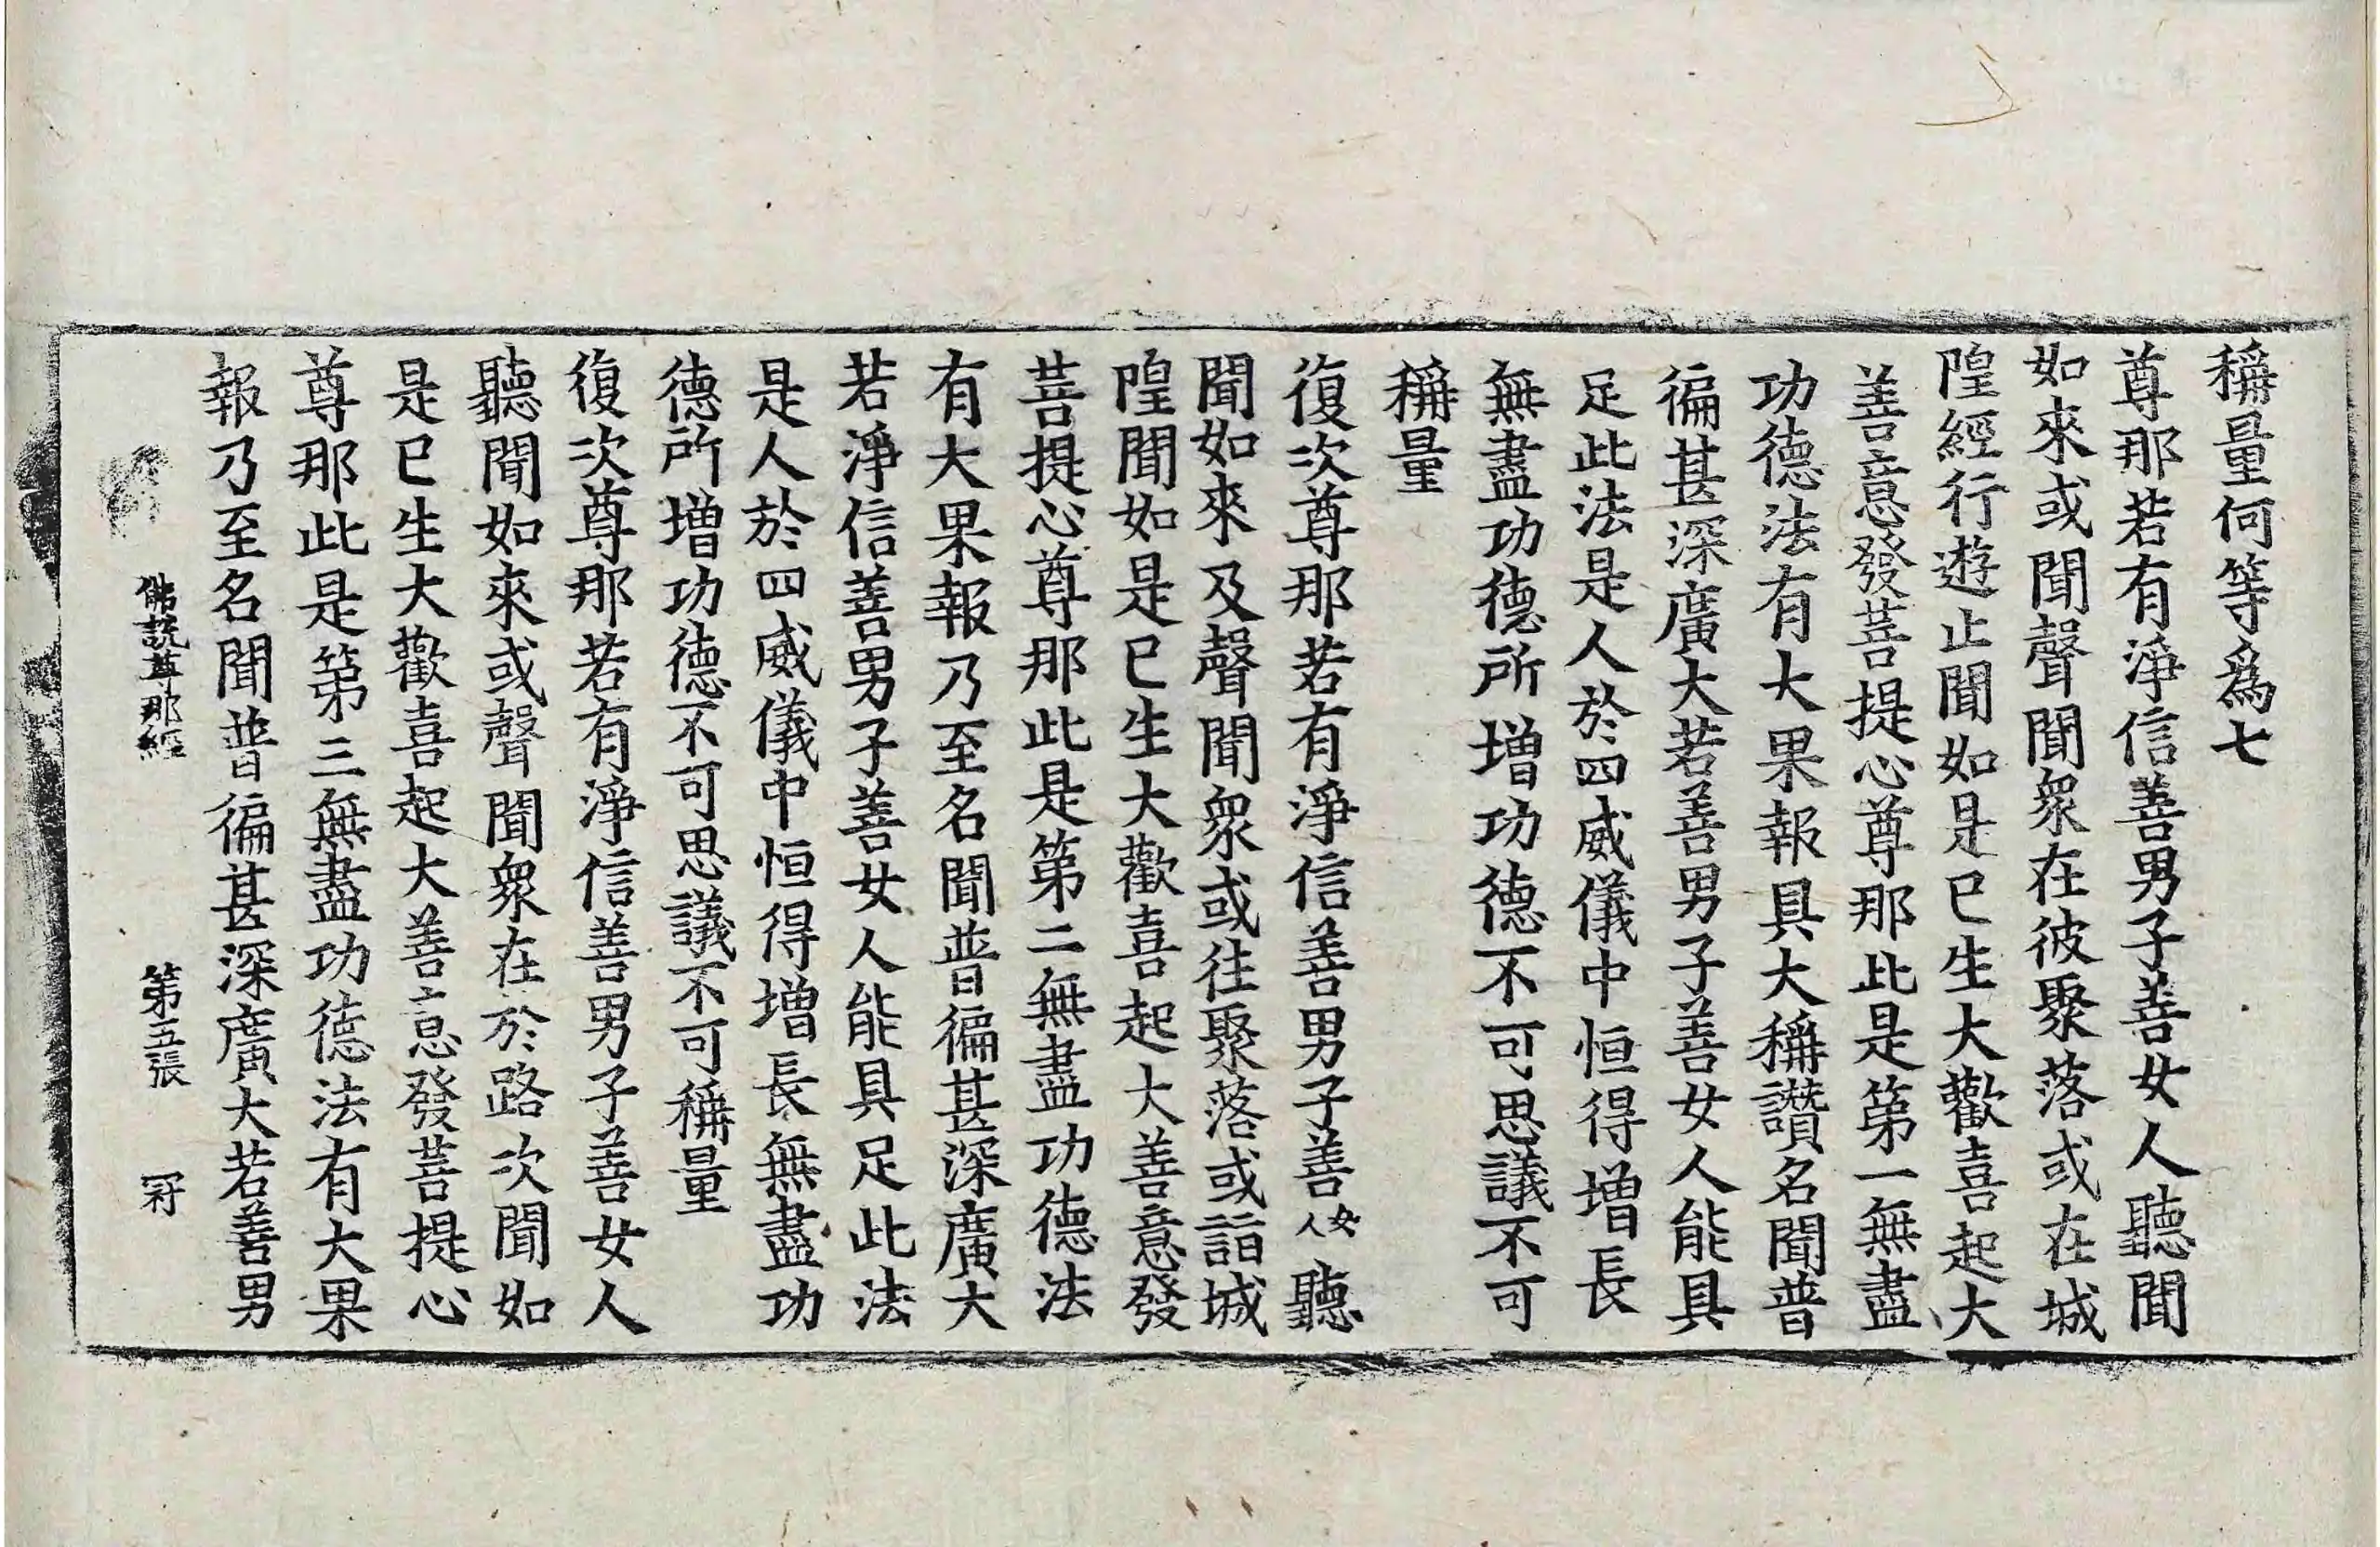 稱量何等爲七
尊那若有淨信善男子善女人聽聞
如來或聞聲聞衆在彼聚落或在城
隍經行遊止聞如是已生大歡喜起大
善意發菩提心尊那此是第一無盡
功德法有大果報具大稱讚名聞普
徧甚深廣大若善男子善女人能具
足此法是人於四威儀中恒得增長
無盡功德所增功德不可思議不可
稱量
復次尊那若有淨信善男子善女人聽
聞如來及聲聞衆或往聚落或詣城
隍聞如是已生大歡喜起大善意發
菩提心尊那此是第二無盡功德法
有大果報乃至名聞普徧甚深廣大
若淨信善男子善女人能具足此法
是人於四威儀中恒得增長無盡功
德所增功德不可思議不可稱量
復次尊那若有淨信善男子善女人
聽聞如來或聲聞衆在於路次聞如
是已生大歡喜起大善意發菩提心
尊那此是第三無盡功德法有大果
報乃至名聞普徧甚深廣大若善男
佛說尊那經 第五張 冠